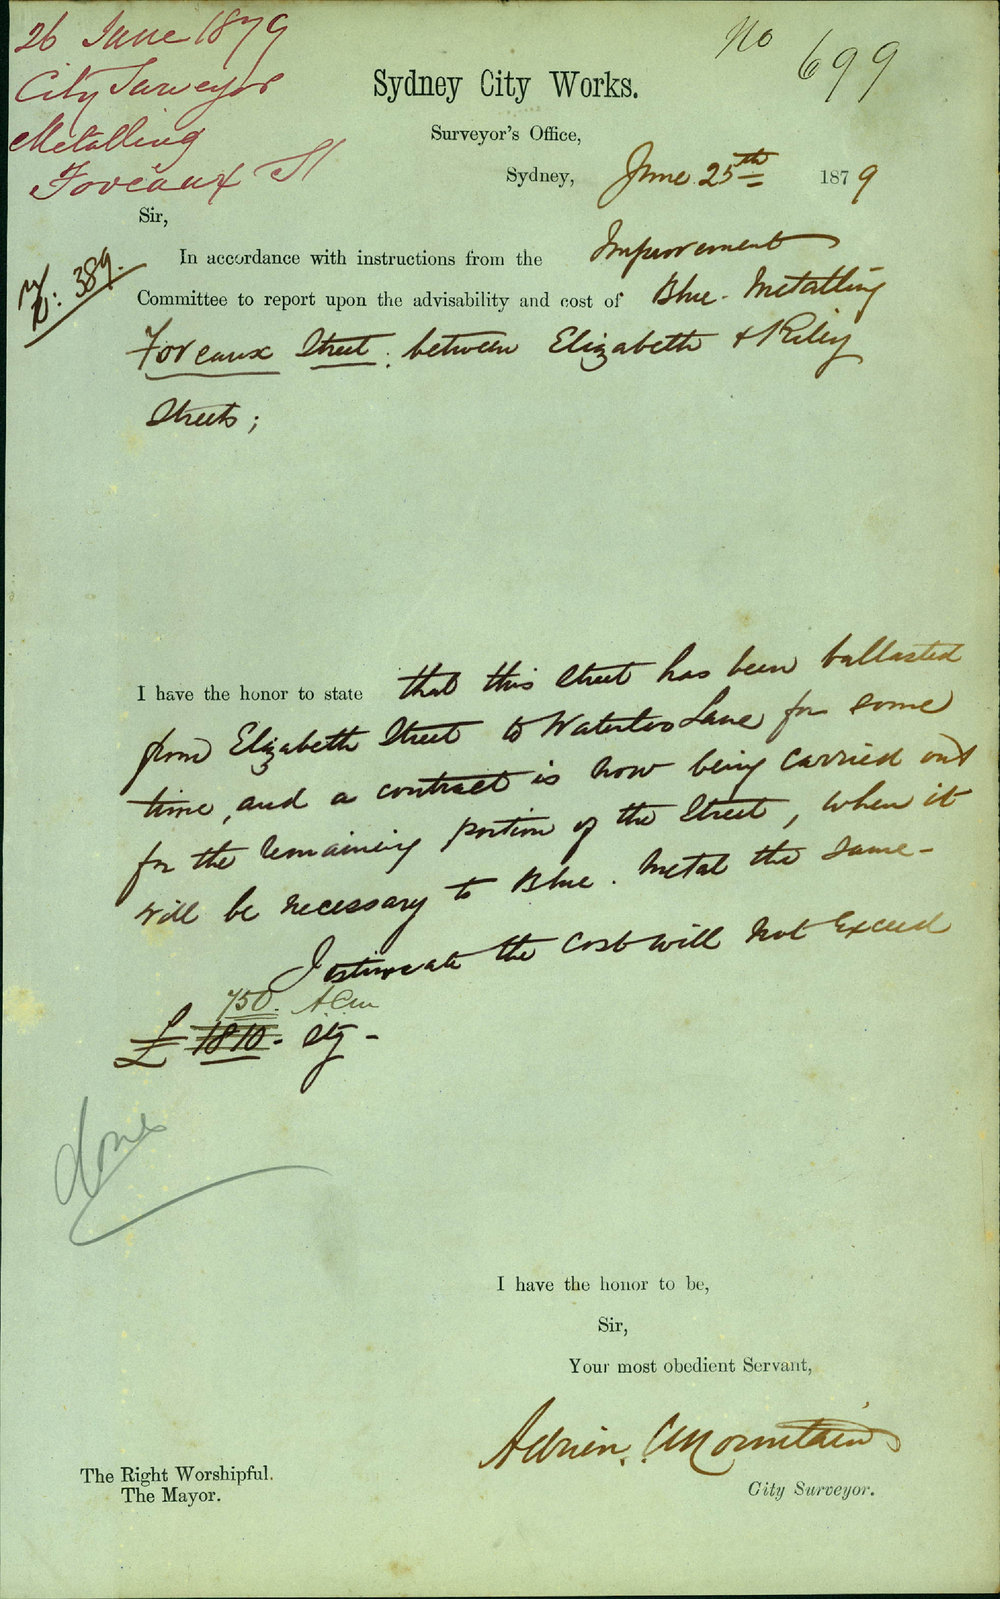 26 June 1879
City Surveyor
Metalling
Foveaux St
No 699
Sydney City Works.
Surveyor's Office,
Sydney, June 25th 1879
Sir,
389.
In accordance with instructions from the Improvement
Committee to report upon the advisability and cost of Blue-Metalling
Foveaux Street. between Elizabeth & Riley
Streets;
I have the honor to state that this Street has been ballasted
from Elizabeth Street to Waterloo Lane for some
time, and a contract is now being carried out
for the remaining portion of the Street, when it
will be necessary to Blue. Metal the same-
I estimate the cost will not exceed
750. ACM
£ 1810- Stg-
done
I have the honor to be,
Sir,
Your most obedient Servant,
Adrien. C Mountain
City Surveyor.
The Right Worshipful.
The Mayor.